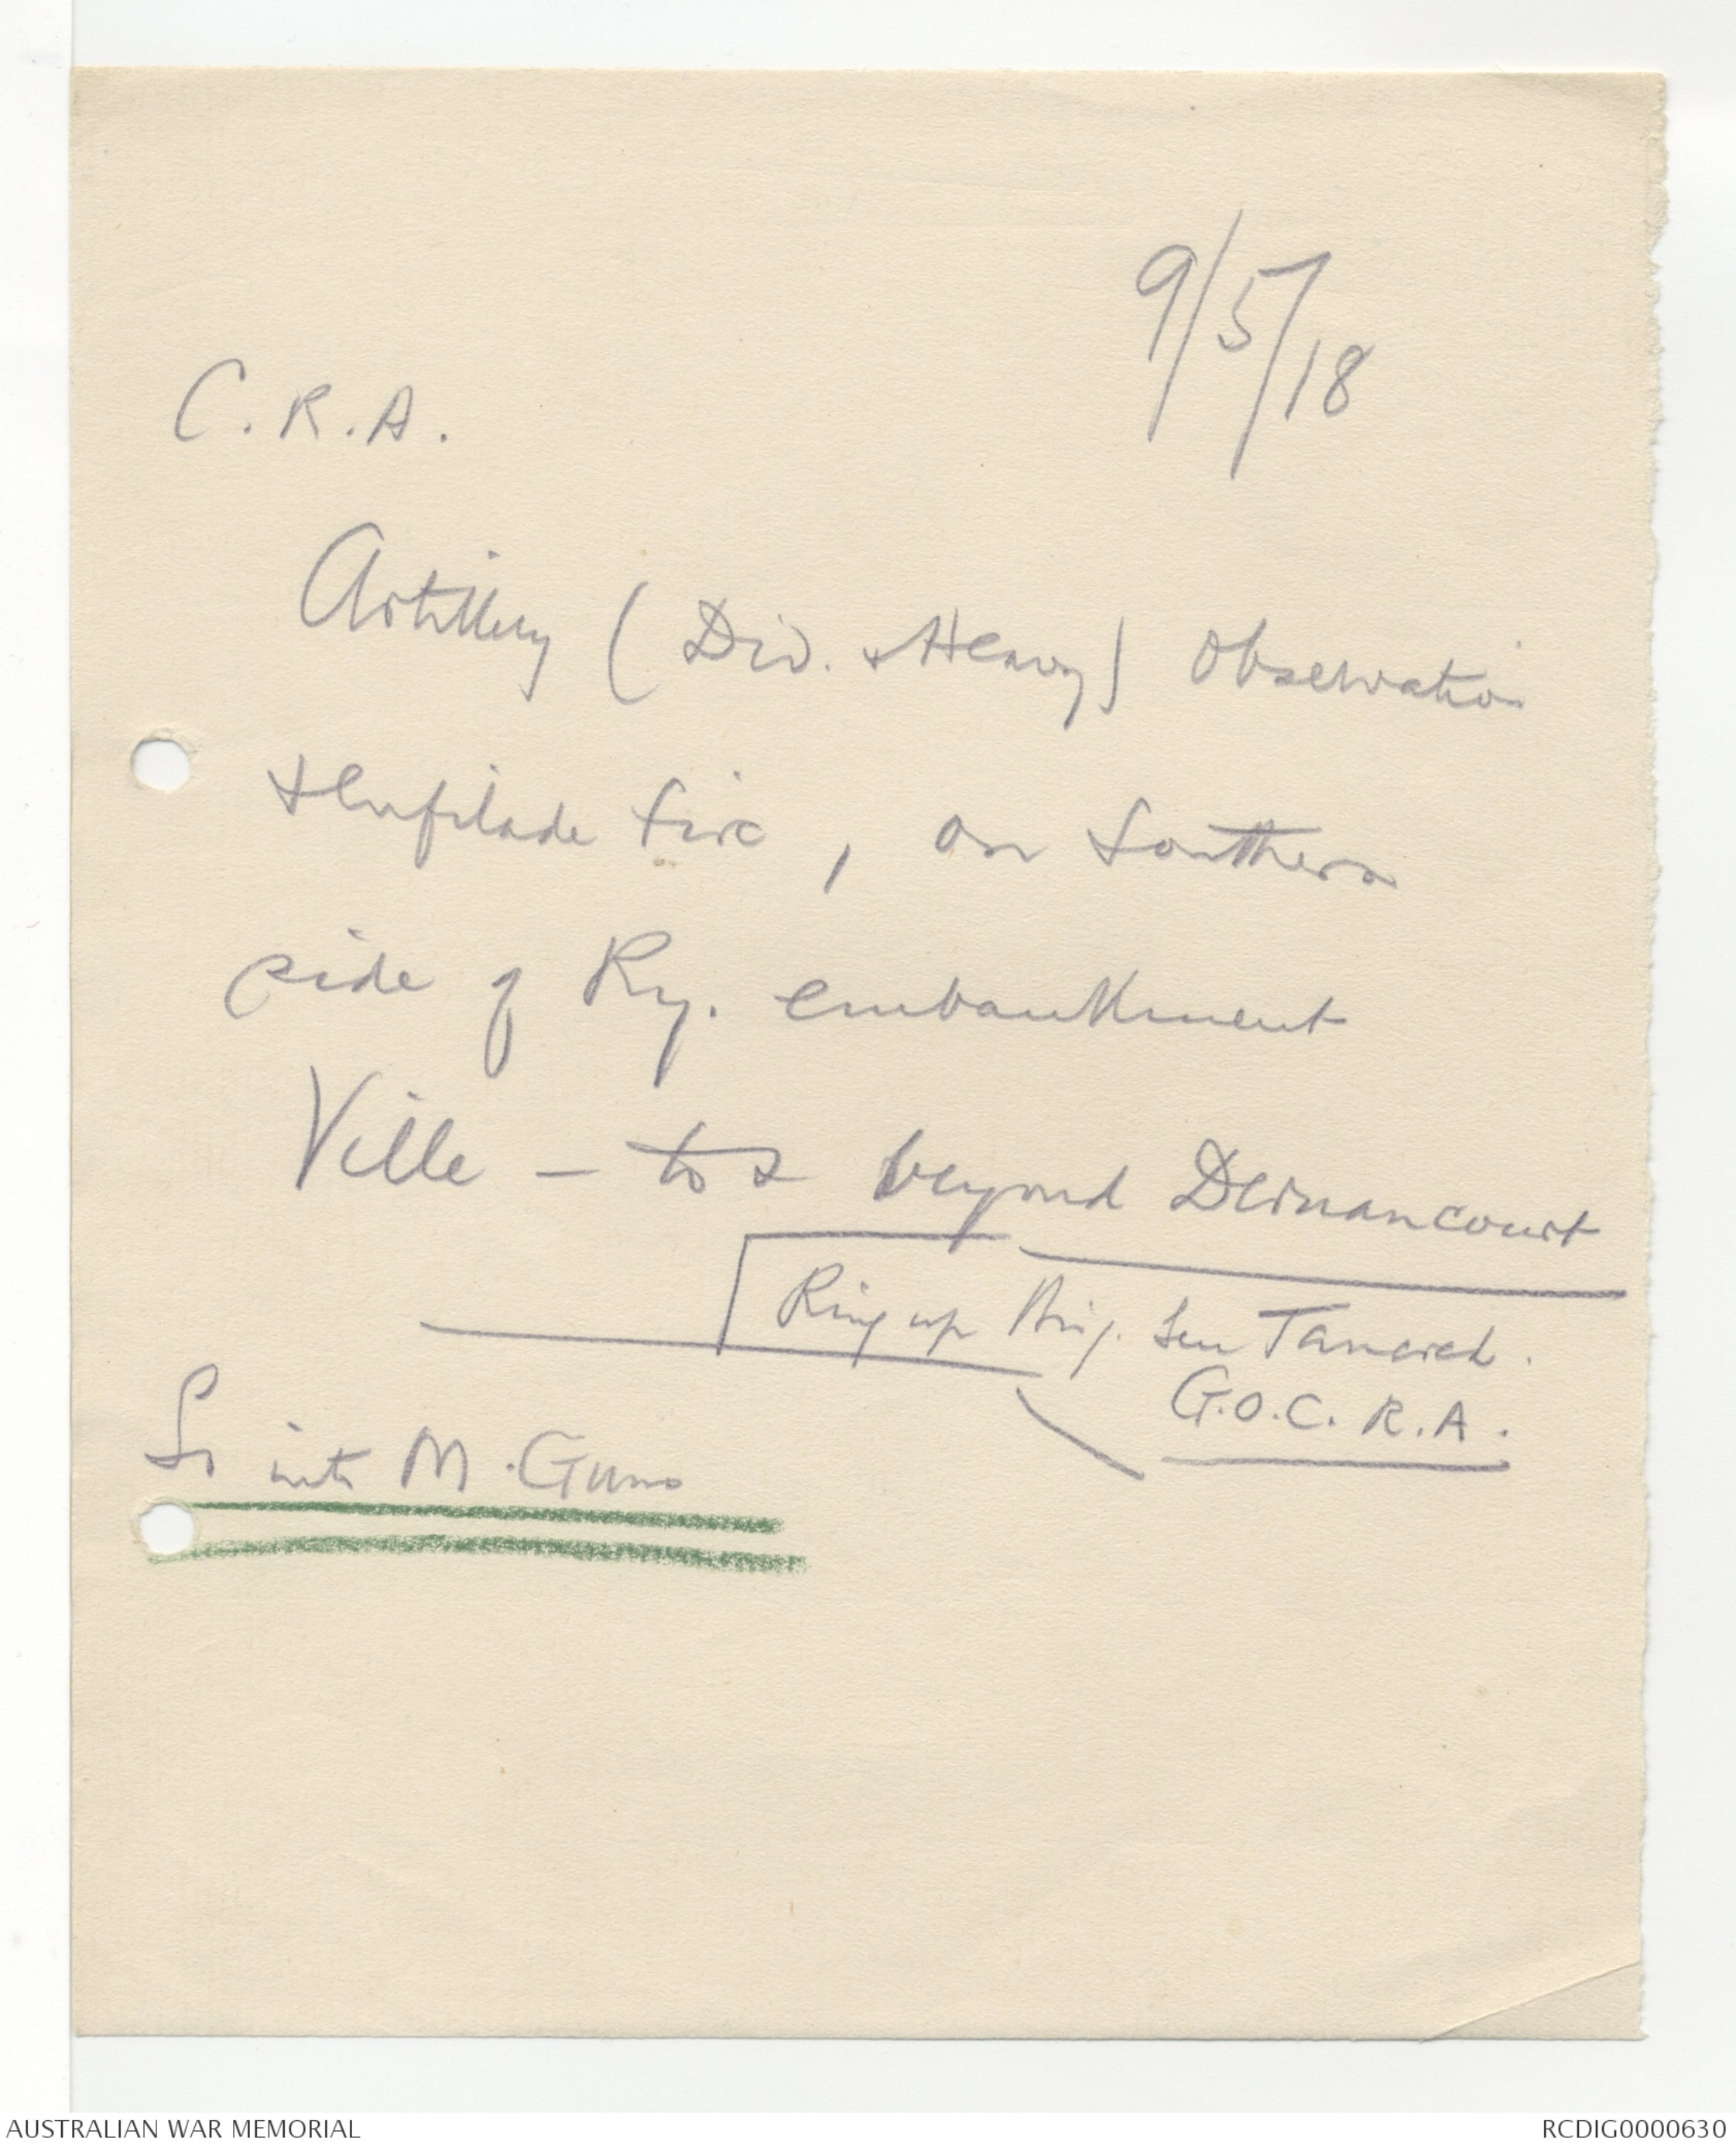 9/5/18
C.R.A.
Artillery (Div. & Heavy) Observation
& Enfilade fire, on Southern
side of Ry. embankment
Ville - to & beyond Dernancourt
Ring up Brig. Gen Tancred.
G.O.C. R.A.
Go into M. Guns
AUSTRALIAN WAR MEMORIAL
RCDIG0000630